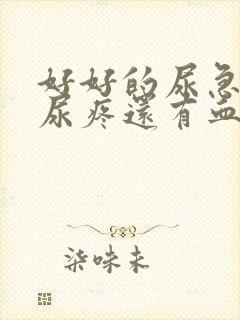 好好的尿急
尿疼還有血
柒味未